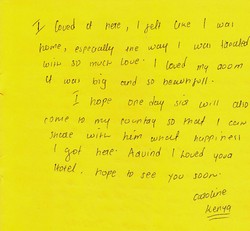 I loved it here, I felt like I was
home, especially the way I was treated
with so much love. I loved my room
it was big and so beautifull.
I hope one day sia will also
come to my country so that I can
share with him what happiness
I got here. Aavind I loved your
Hotel. hope to see you soon.
Caroline
Kenya